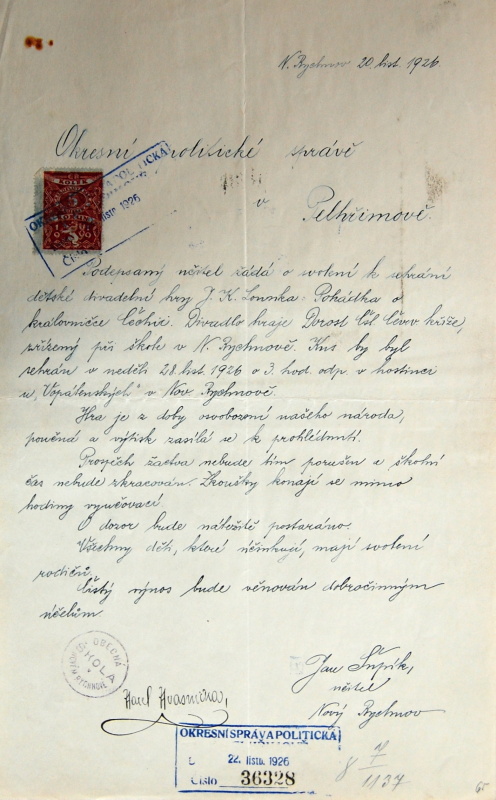 N. Rychnov 20. list. 1926.
Okresní politické správě
v
Pelhřimově.
KOLEK
5
OKR POLITICKÁ
listp. 1926
Číslo
Podepsaný učitel žádá o svolení k sehrání
dětské divadelní hry J. K. Pohádka o
královničce Čechii. Divadlo hraje Dorost Čsl. Červ. kříže,
zřízený při škole v N. Rychnově. Kus by byl
sehrán v neděli 28. list. 1926 o 3. hod. odp. v hostinci
u „Vopálenských“ v Nov. Rychnově.
Hra je z doby osvobození našeho národa,
poučná a výtisk zasílá se k prohlédnutí.
Prospěch žactva nebude tím porušen a školní
čas nebude zkracován. Zkoušky konají se mimo
hodiny vyučovací.
O dozor bude náležitě postaráno.
Všechny děti, které účinkují, mají svolení
rodičů.
Čistý výnos bude věnován dobročinným
účelům.
OBECNÁ
ŠKOLA
V
RYCHNOVĚ
Jan Šípek,
učitel
Karel
Nový Rychnov
OKRESNÍ SPRÁVA POLITICKÁ
22. listp. 1926
Číslo 36328
8 II
I
1137
65